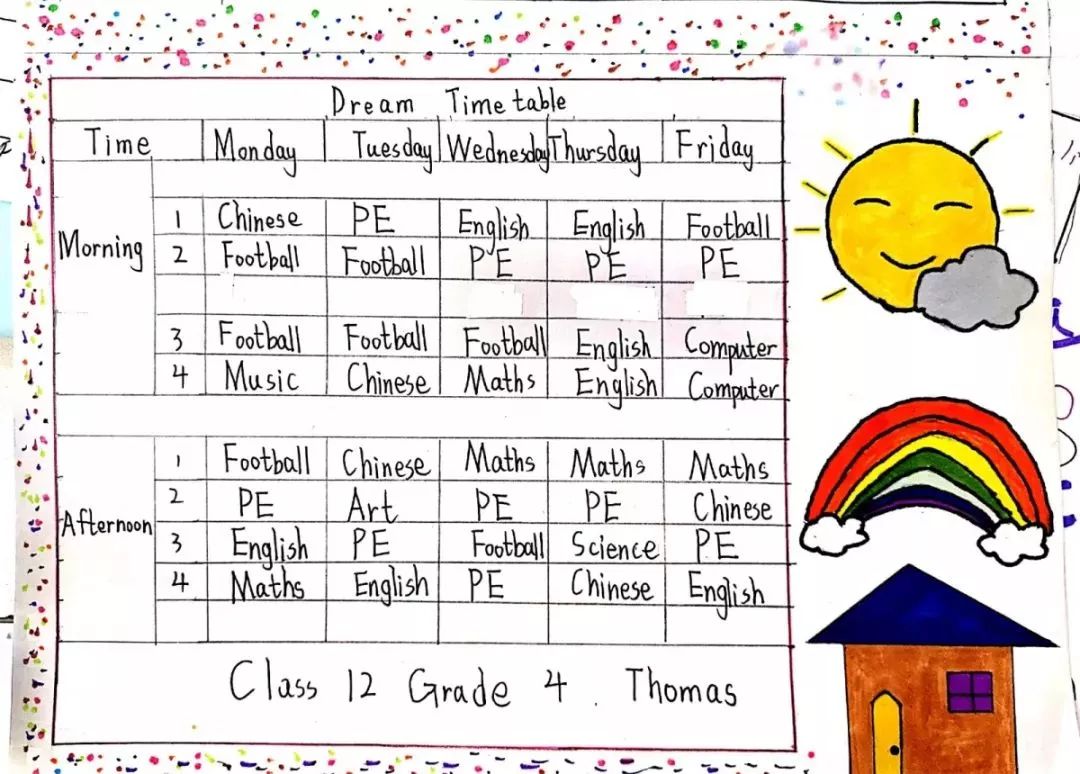 Dream Time table
Time Monday Tuesday Wednesday Thursday Friday
Morning
1 Chinese PE English English Football
2 Football Football PE PE PE
3 Football Football Football English Computer
4 Music Chinese Maths English Computer
Afternoon
1 Football Chinese Maths Maths Maths
2 PE Art PE PE Chinese
3 English PE Football Science PE
4 Maths English PE Chinese English
Class 12 Grade 4 . Thomas